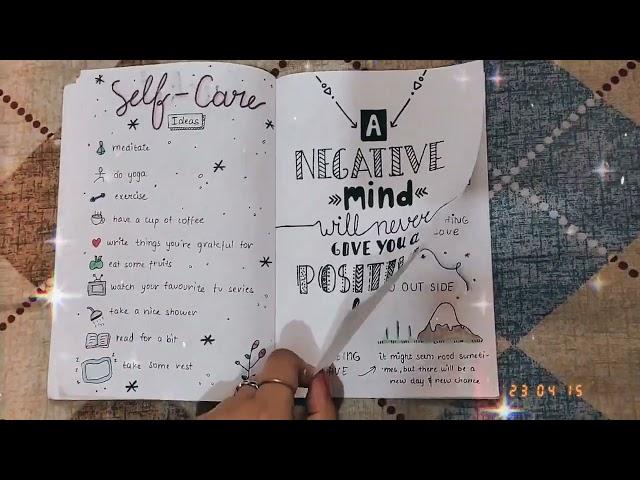 Self-Care
Ideas
meditate
do yoga
exercise
have a cup of coffee
write things you're grateful for
eat some fruits
watch your favourite tv series
take a nice shower
read for a bit
take some rest
A
NEGATIVE
mind
will never
GIVE YOU a
POSITI
OUT SIDE
it might seam rood someti-
mes, but there will be a
new day & new chance
23 04 15